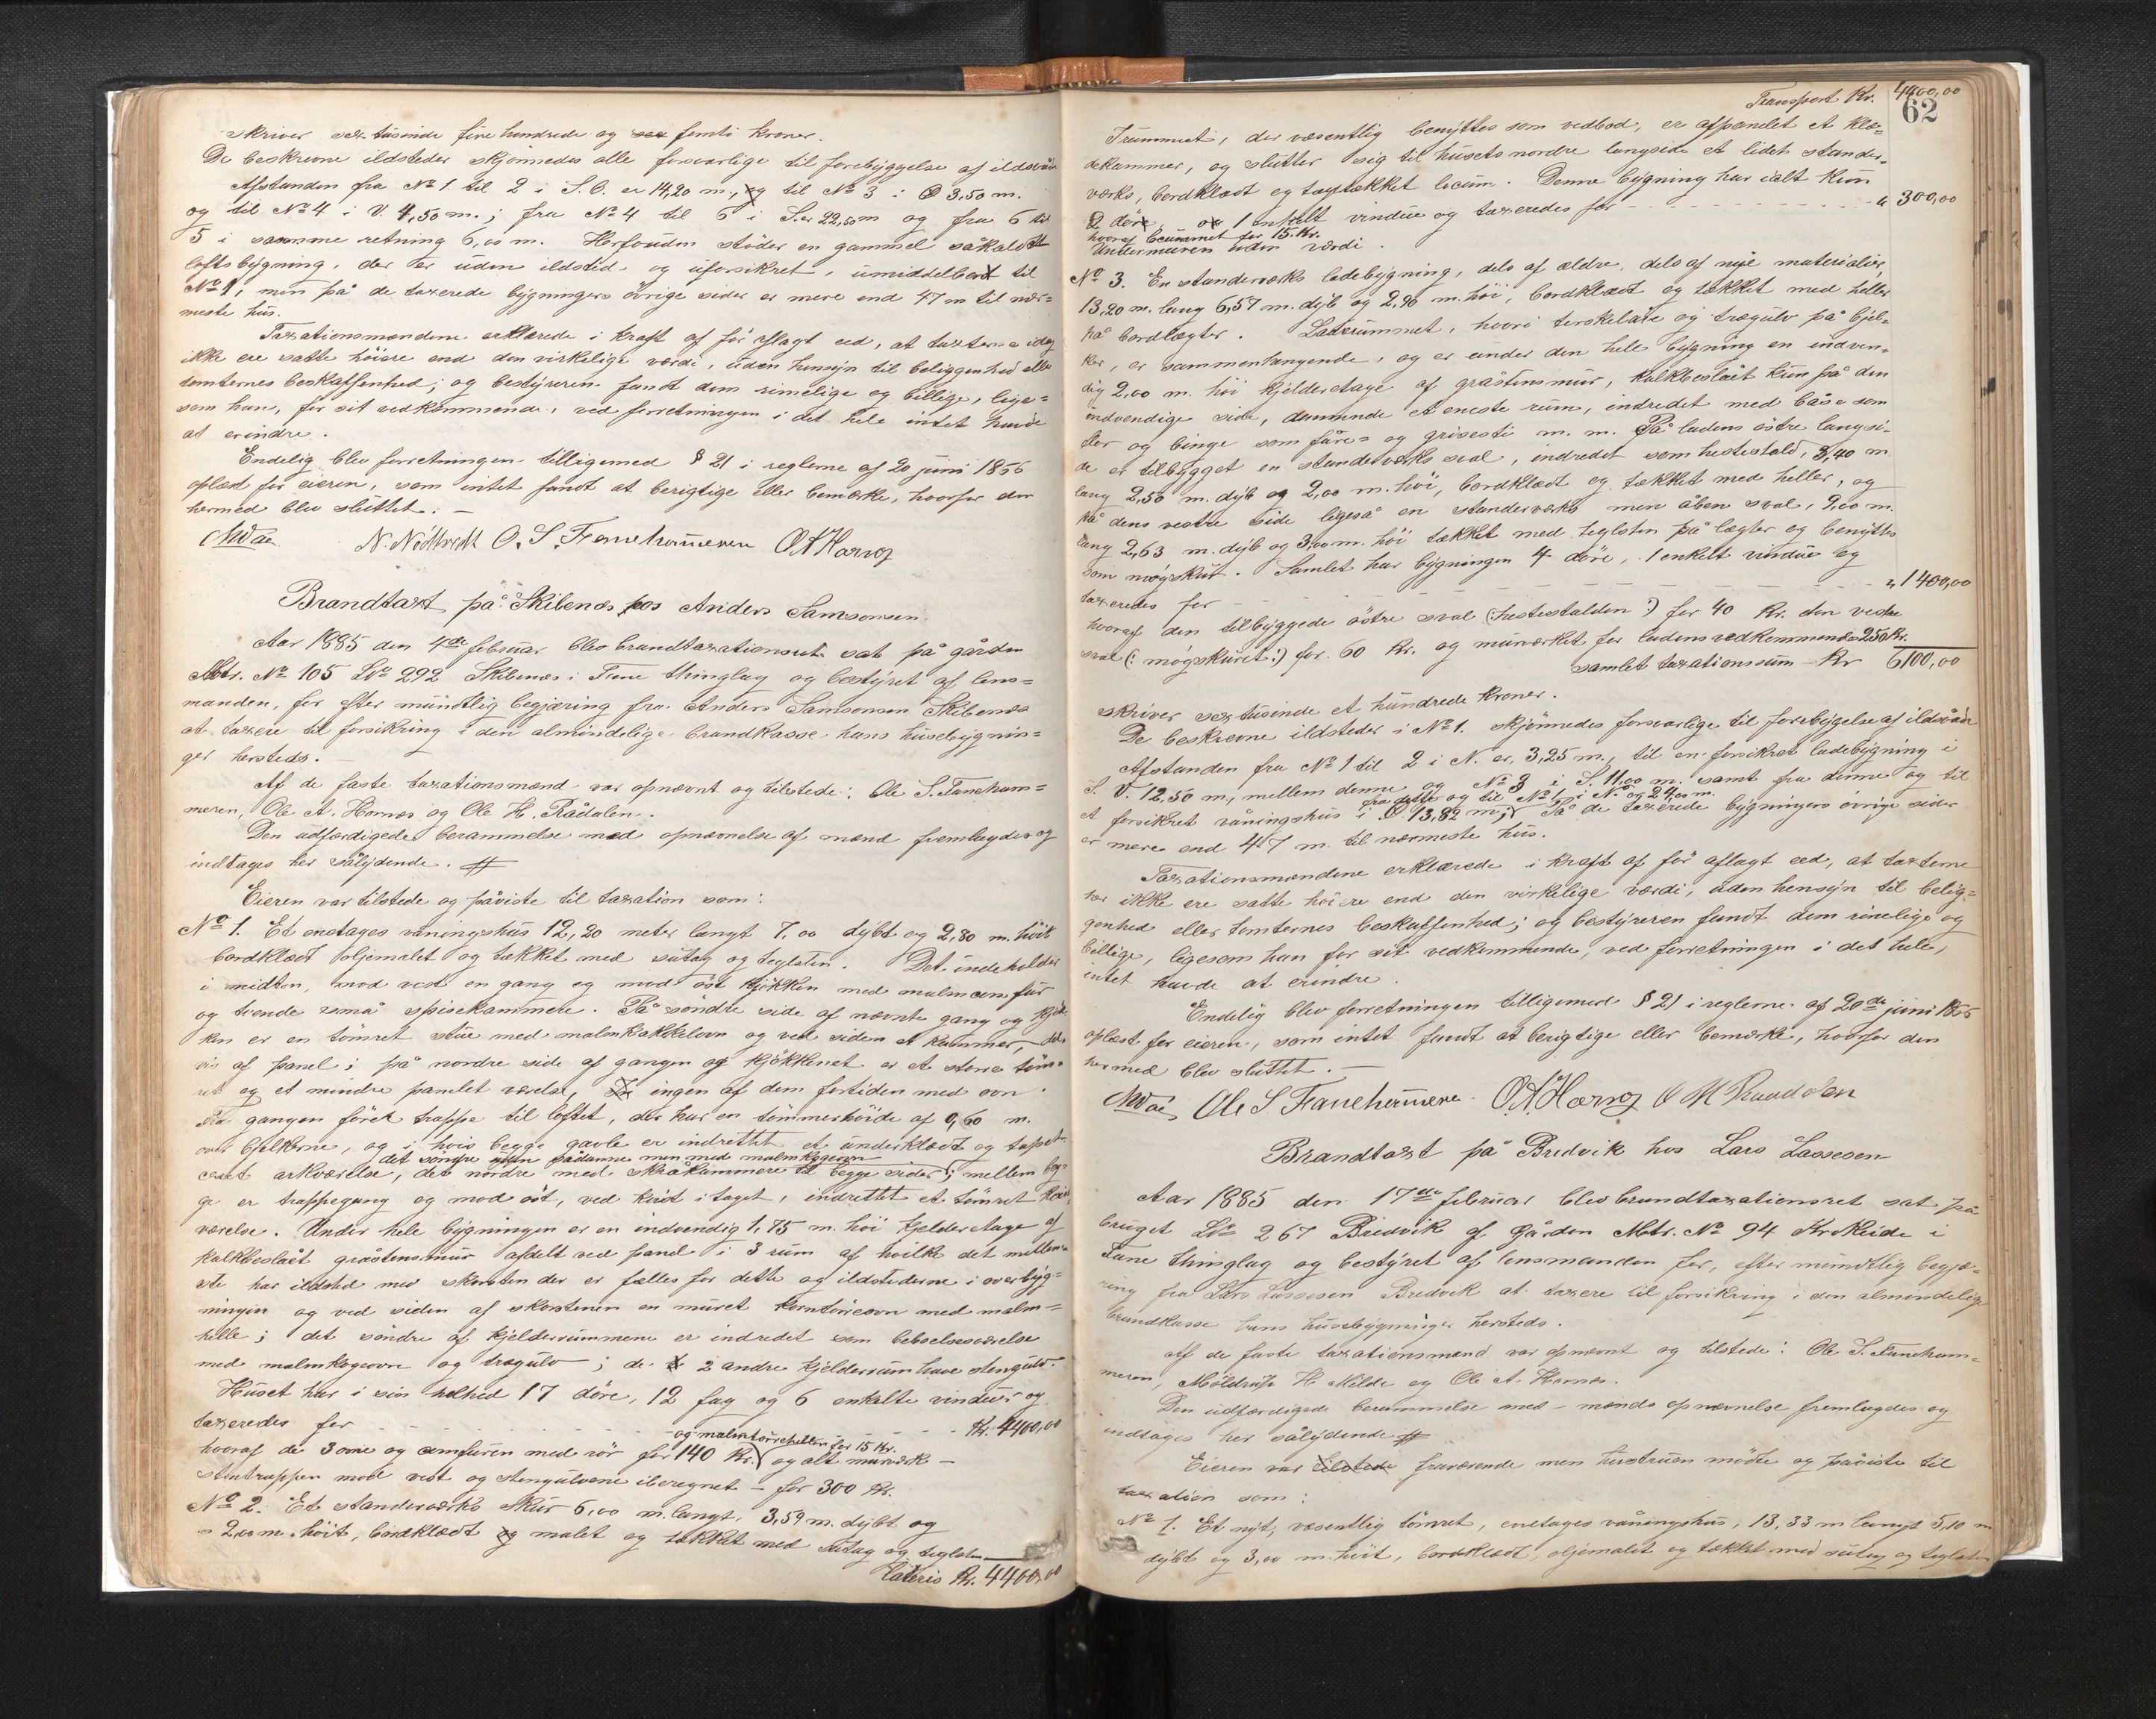 skriver sextusinde fire hundrede og femti kroner.
De beskrevne ildsteder skjönnedes alle forsvarlige til forebyggelse af ildsvåde
Afstanden fra No 1 til 2 i S.O. er 14,20 m., og til No 3 i O 3,50 m.
og til No 4 i V. 4,50 m.; fra No 4 til 6 i S. er 22,50 m og fra 6 til
5 i samme retning 6,00 m. Herforuden stöder en gammel såkaldt
loftsbygning, der er uden ildsted og uforsikret, umiddelbart til
No 1, men på de taxerede bygningers övrige sider er mere end 47 m til nær-
meste hus.
Taxationsmændene erklærede i kraft af för aflagt eed, at taxterne idag
ikke ere satte höiere end den virkelige værdi, uden hensyn til beliggenhed eller
tomternes beskaffenhed; og bestyreren fandt dem rimelige og billige, lige=
som han, for sit vedkommende, ved forretningen i det hele intet havde
at erindre.
Endelig blev forretningen tilligemed § 21 i reglerne af 20 juni 1856
oplæst for eieren, som intet fandt at berigtige eller bemærke, hvorfor den
hermed blev sluttet. —
N. Nödtvedt O. S. Fanehammeren O A Harnæs
Brandtaxt på Skibenæs hos Anders Samsonsen.
Aar 1885 den 4de februar blev brandtaxationsret sat på gården
Mtr. No 105 LNo 292 Skibenæs i Fane thinglag og bestyret af lens=
manden, for efter mundtlig begjæring fra Anders Samsonsen Skibenæs
at taxere til forsikring i den almindelige brandkasse hans husebygnin=
ger hersteds. —
Af de faste taxationsmænd var opnævnt og tilstede: Ole S. Faneham=
meren, Ole A. Harnæs og Ole H. Rådalen.
Den udfærdigede berammelse med opnævnelse af mænd fremlagdes og
indtages her sålydende. #
Eieren var tilstede og påviste til taxation som:
No 1. Et enetages våningshus 12,20 meter langt 7,00 dybt og 2,80 m. höit
bordklædt oljemalet og tækket med sutag og teglsten. Det indeholder
i midten, mod vest en gang og mod öst kjökken med malmcomfur
og tvende små spisekammere. På söndre side af nævnte gang og kjök-
ken er en tömret stue med malmkakkelovn og ved siden et kammer, del-
vis af panel; på nordre side af gangen og kjökkenet er et större töm-
ret og et mindre panelet værelse, ingen af dem fortiden med ovn.
Fra gangen förer trappe til loftet, der har en tömmerhöide af 0,60 m.
over bjelkerne, og i hvis begge gavle er indrettet et underklædt og tapet-
det söndre uden sådanne men med malmkogeovn
seret arkværelse, det nordre med skråkammere til begge sider; mellem beg-
ge er trappegang og mod öst, ved kvist i taget, indrettet et tömret kvist-
værelse. Under hele bygningen er en indvendig 1,75 m. höi kjelderetage af
kalkbeslået gråstensmur afdelt ved panel i 3 rum af hvilke det mellem-
ste har ildsted med skorsten der er fælles for dette og ildstederne i overbyg-
ningen og ved siden af skorstenen en muret korntörreovn med malm=
helle; det söndre af kjelderrummene er indredet som beboelsesværelse
med malmkogeovn og trægulv; de 2 andre kjelderrum have stengulv.
Huset har i sin helhed 17 döre, 12 fag og 6 enkelte vinduer og
taxeredes for - - - - Kr. 4400,00
og malmtörrehellen for 15 kr.
hvoraf de 3 ovne og comfuren med rör for 140 Kr. og alt murværk —
stentrappen mod vest og stengulvene iberegnet — for 300 Kr.
No 2. Et standerværks skur 6,00 m. langt, 3,59 m. dybt og
2,00 m. höit, bordklædt og malet og tækket med sutag og teglsten
Lateris Kr. 4400,00
Transport Kr. 4400,00
62
I rummet, der væsentlig benyttes som vedbod, er afpanelet et klæ=
dekammer, og slutter sig til husets nordre langside et lidet stander=
værks, bordklædt og tagtækket locum. Denne bygning har ialt kun
2 döre, 1 enkelt vindue og taxeredes for - - - - " 300,00
hvoraf locummet for 15 Kr.
Undermuren uden værdi.
No 3. En standerværks ladebygning, dels af ældre, dels af nye materialier,
13,20 m. lang 6,57 m. dyb og 2,90 m. höi, bordklædt og tækket med heller
på bordlægter. Laderummet, hvori terskelåve og trægulv på bjel-
ker, er sammenhængende, og er under den hele bygning en indven-
dig 2,00 m. höi kjelderetage af gråstensmur, kalkbeslået kun på den
indvendige side, dannende et eneste rum, indredet med båse som
flor og binge som fåre= og grisesti m. m. På ladens östre langsi-
de er tilbygget en standerværks sval, indredet som hestestald, 3,40 m.
lang 2,50 m. dyb og 2,00 m. höi, bordklædt og tækket med heller, og
på dens vestre side ligeså en standerværks men åben sval, 9,00 m.
lang 2,63 m. dyb og 3,00 m. höi tækket med teglsten på lægter og benyttes
som mögskur. Samlet har bygningen 4 döre, 1 enkelt vindue og
taxeredes for - - - - " 1400,00
hvoraf den tilbyggede östre sval (:hestestalden:) for 40 Kr. den vestre
sval (: mögskuret:) for 60 Kr. og murværket for ladens vedkommende 250 Kr.
samlet taxationssum — Kr 6100,00
skriver sextusinde et hundrede kroner.
De beskrevne ildsteder i No 1. skjönnedes forsvarlige til forebyggelse af ildsvåde
Afstanden fra No 1 til 2 i N. er 3,25 m., til en forsikret ladebygning i
S. V. 12,50 m., mellem denne og No 3 i S. 11,00 m. samt fra denne og til
fra dette og til No 1 i N. og 24,00 m.
et forsikret våningshus i O. 13,82 m; På de taxerede bygningers övrige sider
er mere end 47 m. til nærmeste hus.
Taxationsmændene erklærede i kraft af för aflagt eed, at taxterne
her ikke ere satte höiere end den virkelige værdi, uden hensyn til belig=
genhed eller tomternes beskaffenhed; og bestyreren fandt dem rimelige og
billige, ligesom han for sit vedkommende, ved forretningen i det hele,
intet havde at erindre.
Endelig blev forretningen tilligemed § 21 i reglerne af 20de juni 1856
oplæst for eieren, som intet fandt at berigtige eller bemærke, hvorfor den
hermed blev sluttet. —
Ole S Fanehammeren. O. A. Harnæs O H Raadalen
Brandtaxt på Bredvik hos Lars Lassesen
Aar 1885 den 17de februar blev brandtaxationsret sat på
bruget LNo 267 Bredvik af gården Mtr. No 94 Krokeide i
Fane thinglag og bestyret af lensmanden for, efter mundtlig begjæ-
ring fra Lars Lassesen Bredvik at taxere til forsikring i den almindelige
brandkasse hans husebygninger hersteds.
Af de faste taxationsmænd var opnævnt og tilstede: Ole S. Faneham=
meren, Möldrup H. Milde og Ole A. Harnæs.
Den udfærdigede berammelse med — mænds opnævnelse fremlagdes og
indtages her sålydende #
Eieren var fraværende men hustruen mödte og påviste til
taxation som:
No 1. Et nyt, væsentlig tömret, enetages våningshus, 13,33 m langt 5,10 m
dybt og 3,00 m. höit, bordklædt, oljemalet og tækket med sutag og teglsten